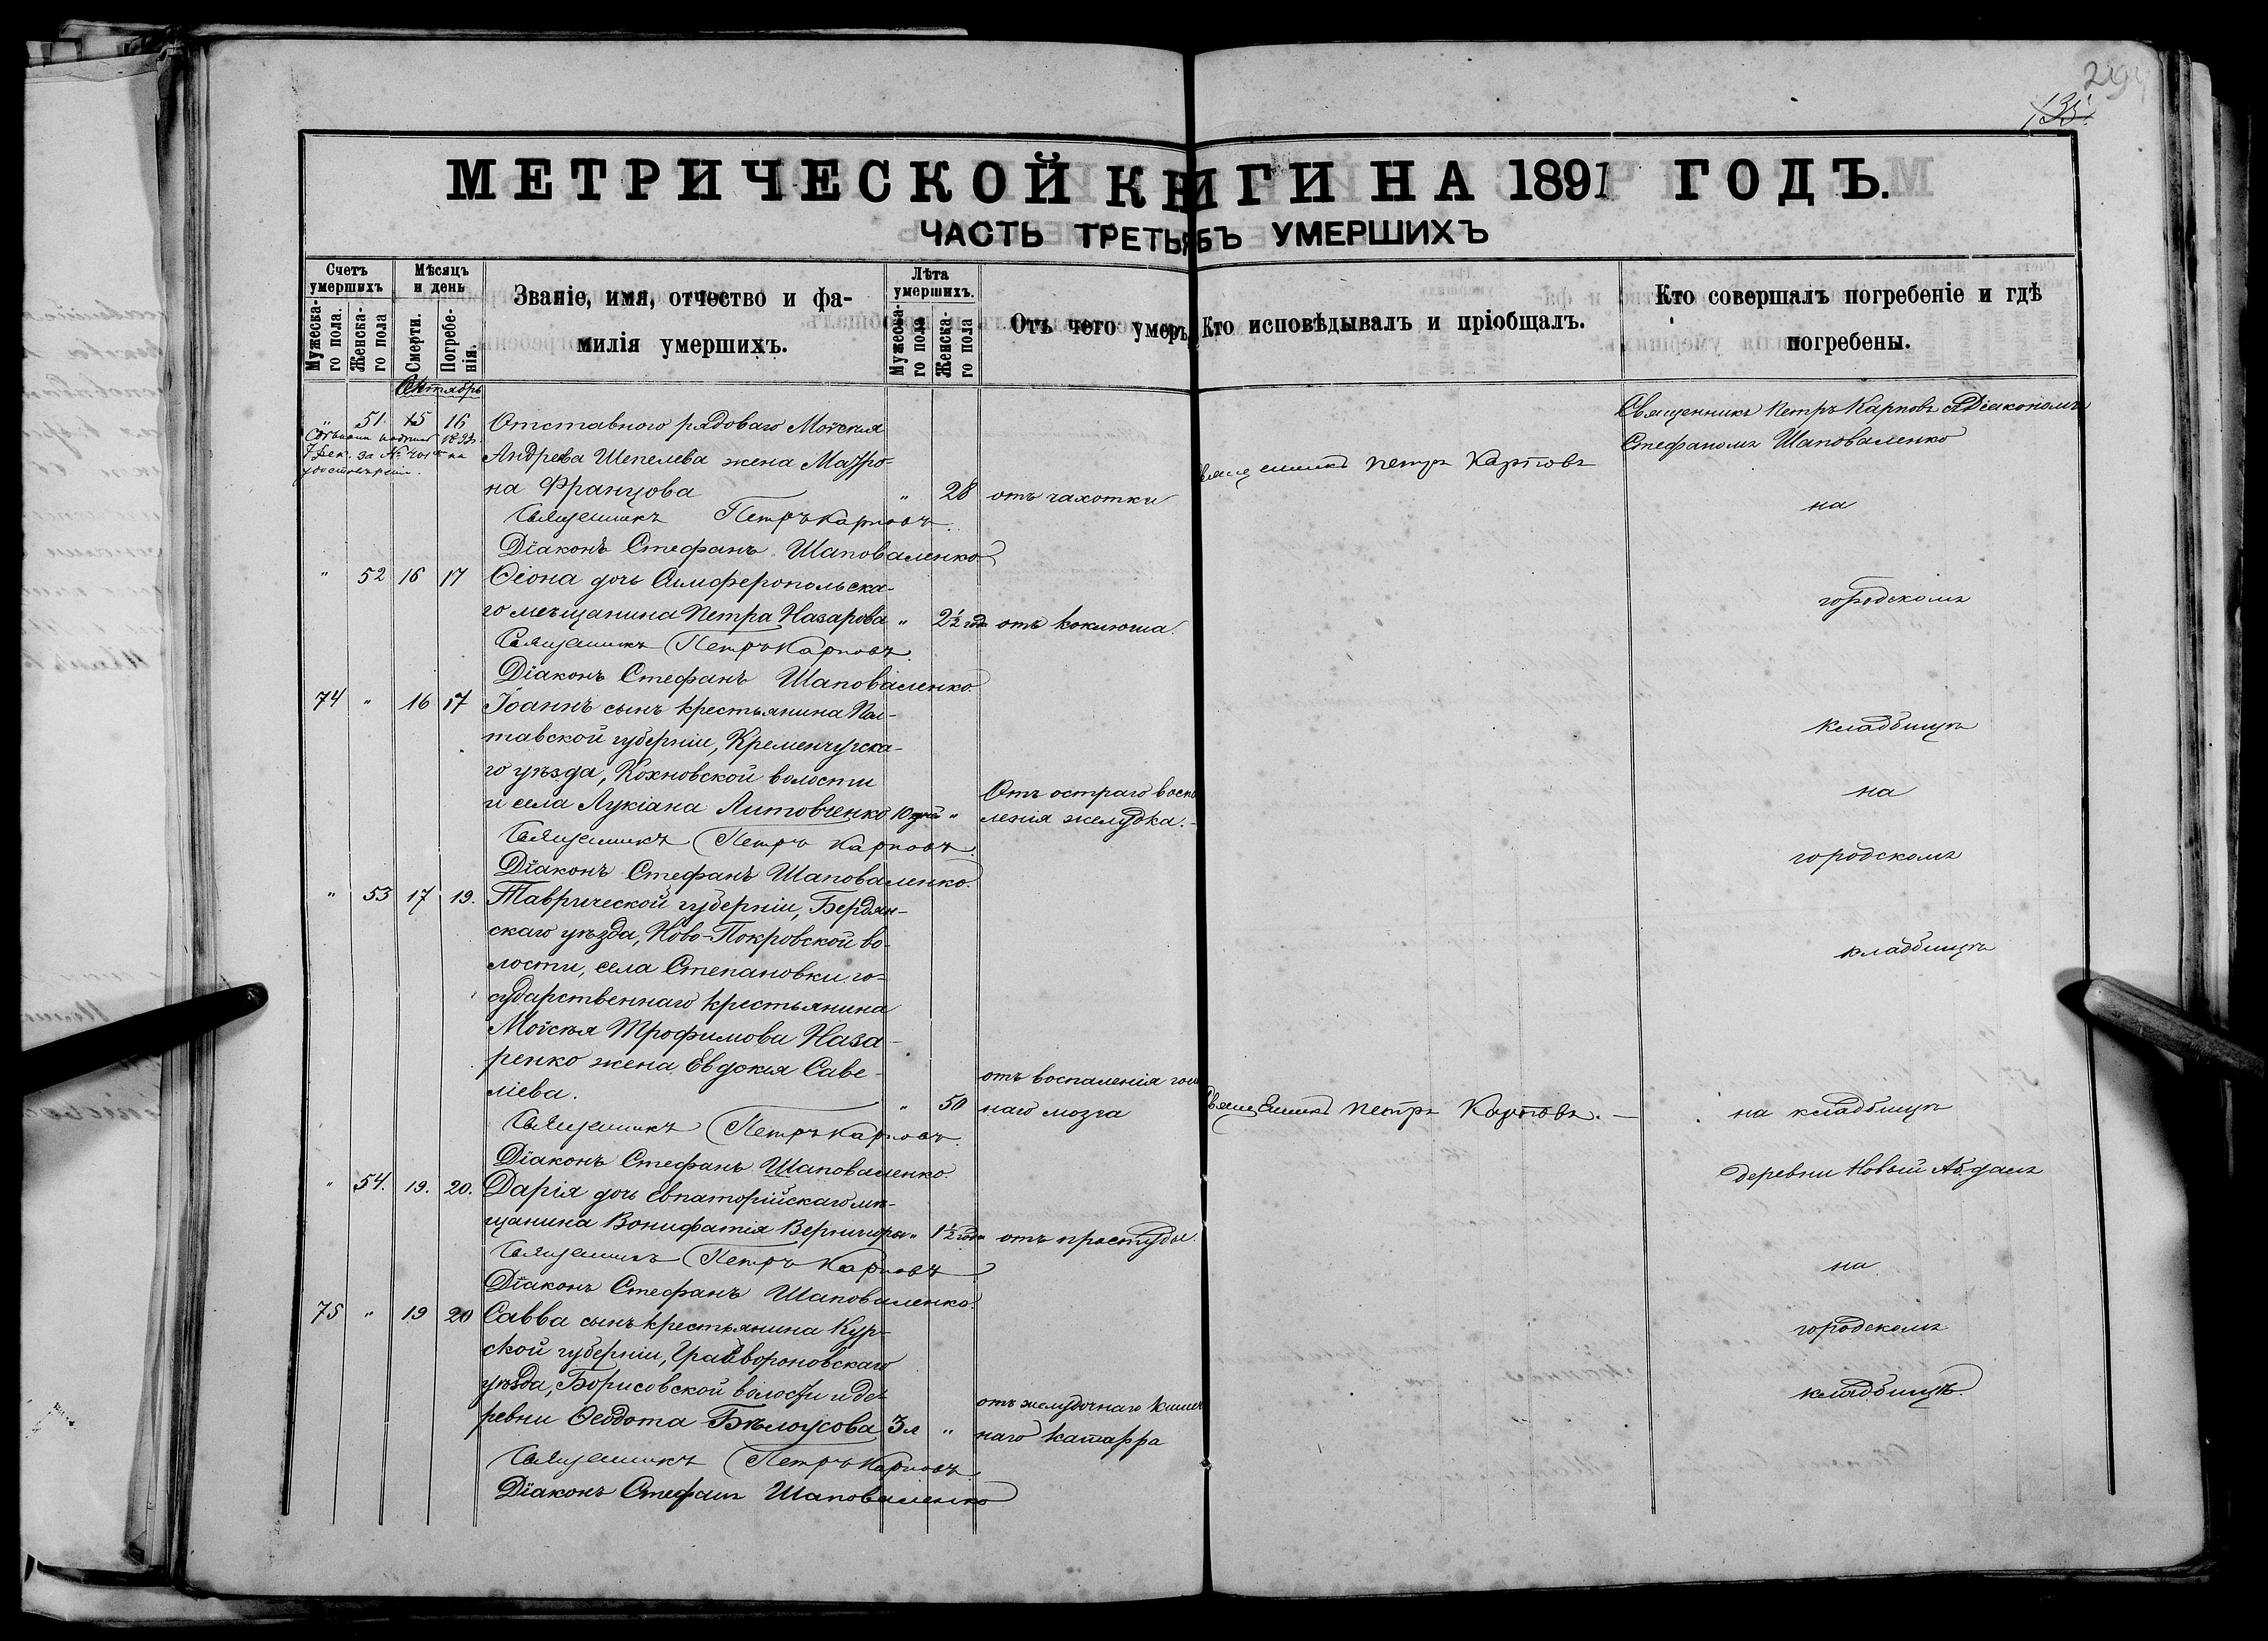 294
135.
МЕТРИЧЕСКОЙ КНИГИ НА 1891 ГОДЪ.
ЧАСТЬ ТРЕТЬЯ ОБЪ УМЕРШИХЪ
Счетъ умершихъ
Мужеска-го пола.
Женска-го пола
Мѣсяцъ и день
Смерти.
Погребе-нія.
Званіе, имя, отчество и фа-
милія умершихъ.
Лѣта умершихъ.
Мужеска-го пола
Женска-го пола
Отъ чего умеръ
Кто исповѣдывалъ и пріобщалъ.
Кто совершалъ погребеніе и гдѣ
погребены.
Сентябрь
" 51. 15 16 Отставного рядоваго Моѵсея
Андреева Шепелева жена Матро-
на Францова " 28 отъ чахотки
Священникъ Петръ Карповъ
Священникъ Петръ Карповъ съ Діакономъ
Стефаномъ Шаповаленко
на
Священникъ Петръ Карповъ.
Діаконъ Стефанъ Шаповаленко
" 52 16 17 Ѳіона дочь Симферопольска-
го мещанина Петра Назарова " 2½ года отъ коклюша.
городскомъ
Священникъ Петръ Карповъ.
Діаконъ Стефанъ Шаповаленко.
74 " 16 17 Іоаннъ сынъ крестьянина Пол-
тавской губерніи, Кременчугска-
го уѣзда, Кохновской волости
и села Лукіана Литовченко 10 дней "
Отъ остраго воспа
ленія желудка.
кладбищѣ
на
Священникъ Петръ Карповъ.
Діаконъ Стефанъ Шаповаленко.
городскомъ
" 53 17 19. Таврической губерніи, Бердян-
скаго уѣзда, Ново-Покровской во-
лости, села Степановки го-
сударственнаго крестьянина
Моѵсея Трофимова Наза-
ренко жена Евдокія Саве-
ліева. " 50
отъ воспаленія голов
наго мозга
кладбищѣ
Священникъ Петръ Карповъ.
на кладбищѣ
деревни Новый Абдалъ
Священникъ Петръ Карповъ.
Діаконъ Стефанъ Шаповаленко.
" 54. 19. 20. Дарія дочь Евпаторійскаго мѣ-
щанина Вонифатія Вернигоры " 1½ года отъ простуды.
Священникъ Петръ Карповъ
Діаконъ Стефанъ Шаповаленко.
на
75 " 19 20 Савва сынъ крестьянина Кур-
ской губерніи, Грайвороновскаго
уѣзда, Борисовской волости и де-
ревни Ѳеодота Бѣлоусова 3 л "
отъ желудочнаго кишеч
наго катарра
городскомъ
кладбищѣ.
Священникъ Петръ Карповъ.
Діаконъ Стефанъ Шаповаленко